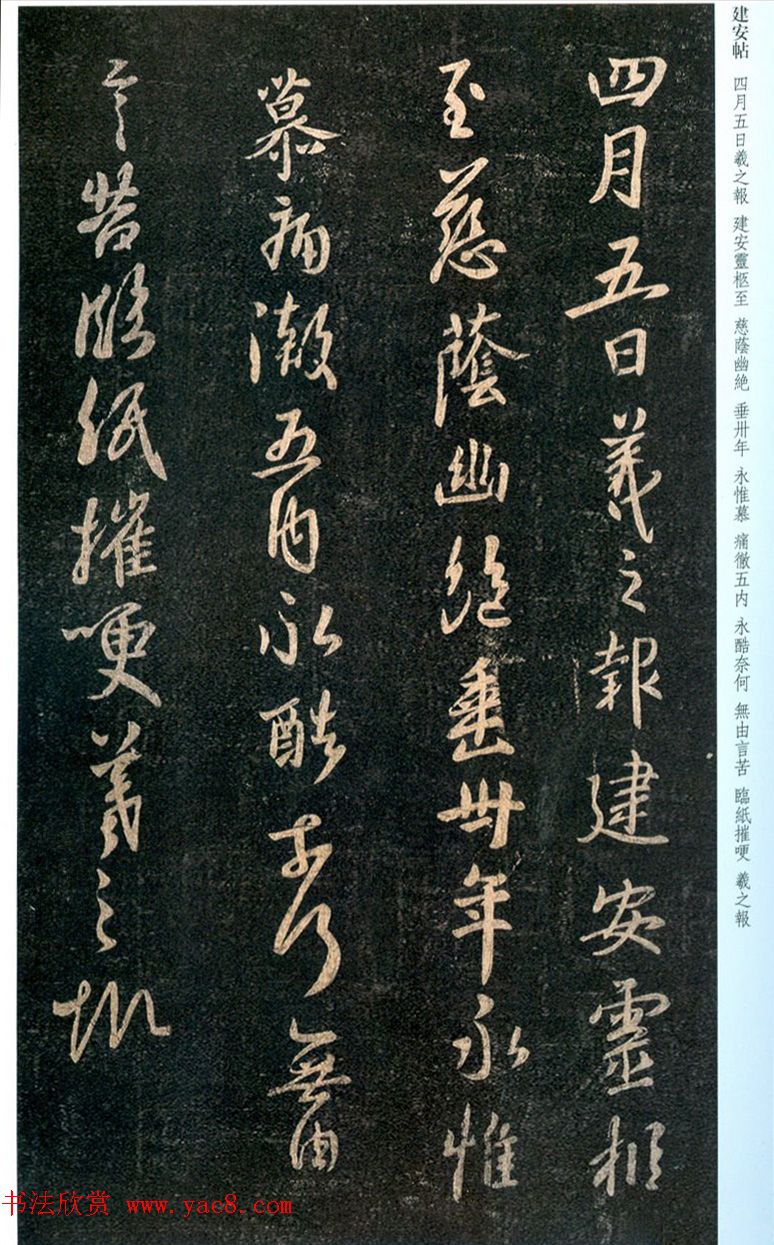 建安帖 四月五日羲之報 建安靈柩至 慈蔭幽絶 垂卅年 永惟慕 痛徹五内 永酷奈何 無由言苦 臨紙摧哽 羲之報
四月五日羲之報建安靈柩
至慈蔭幽絶垂卅年永惟
慕痛徹五内永酷奈何無由
言苦臨紙摧哽羲之報
书法欣赏 www.yac8.com